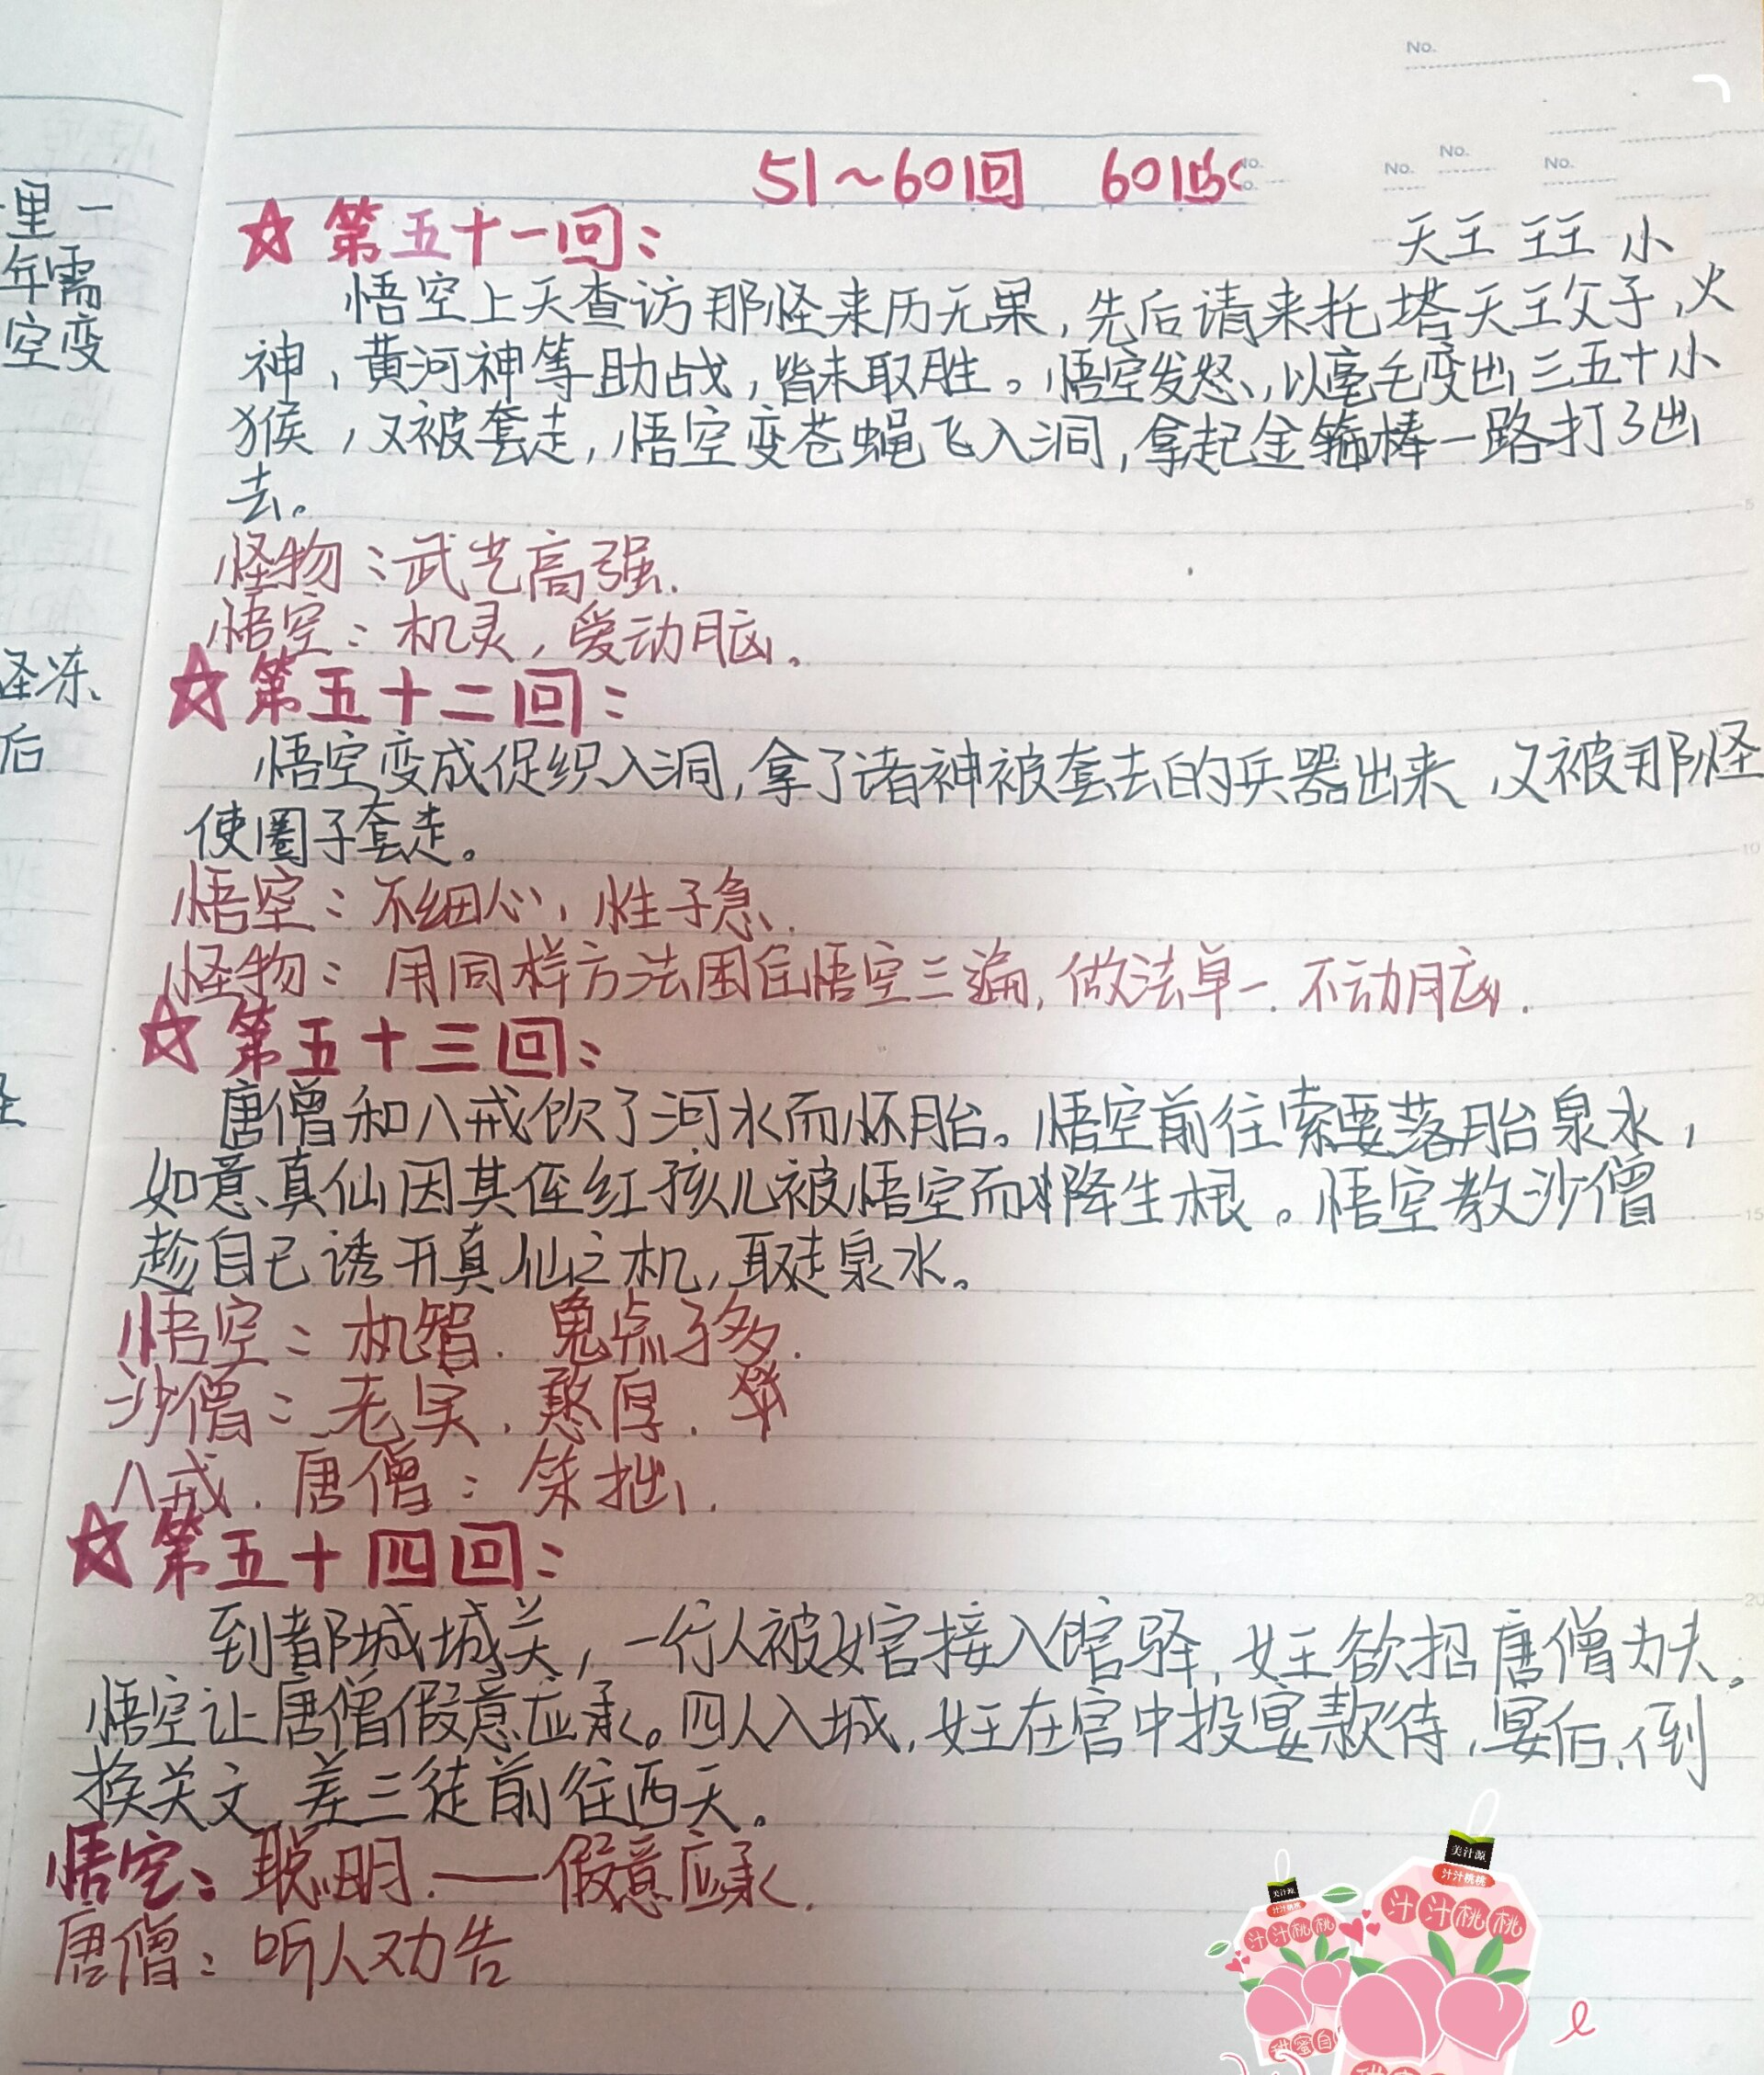 No.
51~60回 60回
No. No. No.
里一
年需
空变
天王 王王 小
☆第五十一回：
悟空上天查访那怪来历无果，先后请来托塔天王父子，火
神，黄河神等助战，皆未取胜。悟空发怒，以毫毛变出三五十小
猴，又被套走，悟空变苍蝇飞入洞，拿起金箍棒一路打了出
去。
怪物：武艺高强.
悟空：机灵，爱动脑。
怪冻
后
☆第五十二回：
悟空变成促织入洞，拿了诸神被套去的兵器出来，又被那怪
使圈子套走。
悟空：不细心，性子急.
怪物：用同样方法困住悟空三遍，做法单一.不动脑.
☆第五十三回：
唐僧和八戒饮了河水而怀胎。悟空前往索要落胎泉水，
如意真仙因其侄红孩儿被悟空而降生根。悟空教沙僧
趁自己诱开真仙之机，取走泉水。
悟空：机智.鬼点子多.
沙僧：老实.憨厚.
八戒.唐僧：笨拙.
☆第五十四回：
到都城城关，一行人被女官接入馆驿，女王欲招唐僧为夫。
悟空让唐僧假意应承。四人入城，女王在宫中设宴款待，宴后，倒
换关文，差三徒前往西天。
悟空：聪明.——假意应承.
唐僧：听人劝告
5
10
15
20
美汁源
汁汁桃桃
汁汁桃桃
美汁源
汁汁桃桃
汁汁桃桃